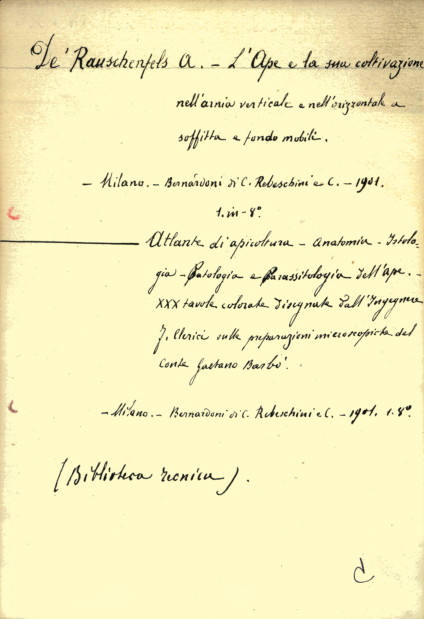 De' Rauschenfels A. - L'Ape e la sua coltivazione
nell'arnia verticale e nell'orizzontale a
soffitta e fondo mobili.
- Milano. - Bernardoni di C. Rebeschini e C. - 1901.
1. in - 8º.
Atlante di apicoltura - Anatomia - Istolo-
gia - Patologia e Parassitologia dell'Ape. -
XXX tavole colorate disegnate dall'Ingegnere
F. Clerici sulle preparazioni microscopiche del
Conte Gaetano Barbò.
- Milano. - Bernardoni di C. Rebeschini e C. - 1901. 1. 8º.
(Biblioteca tecnica).